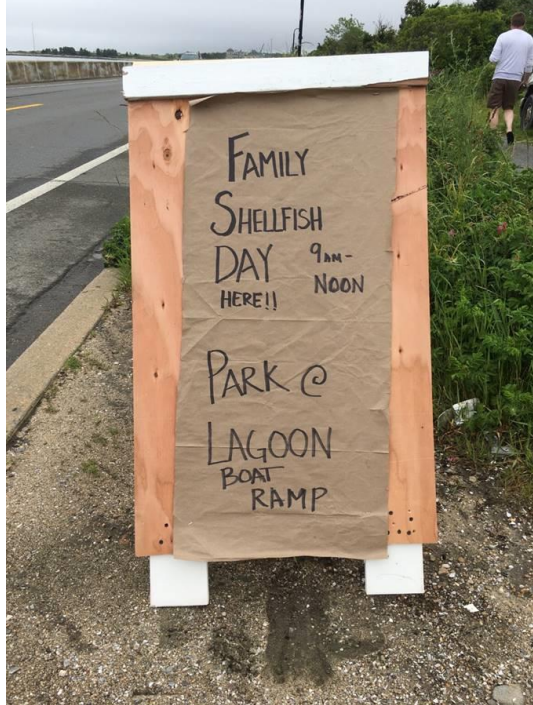 FAMILY
SHELLFISH
DAY 9AM-
HERE!! NOON
PARK @
LAGOON
BOAT
RAMP